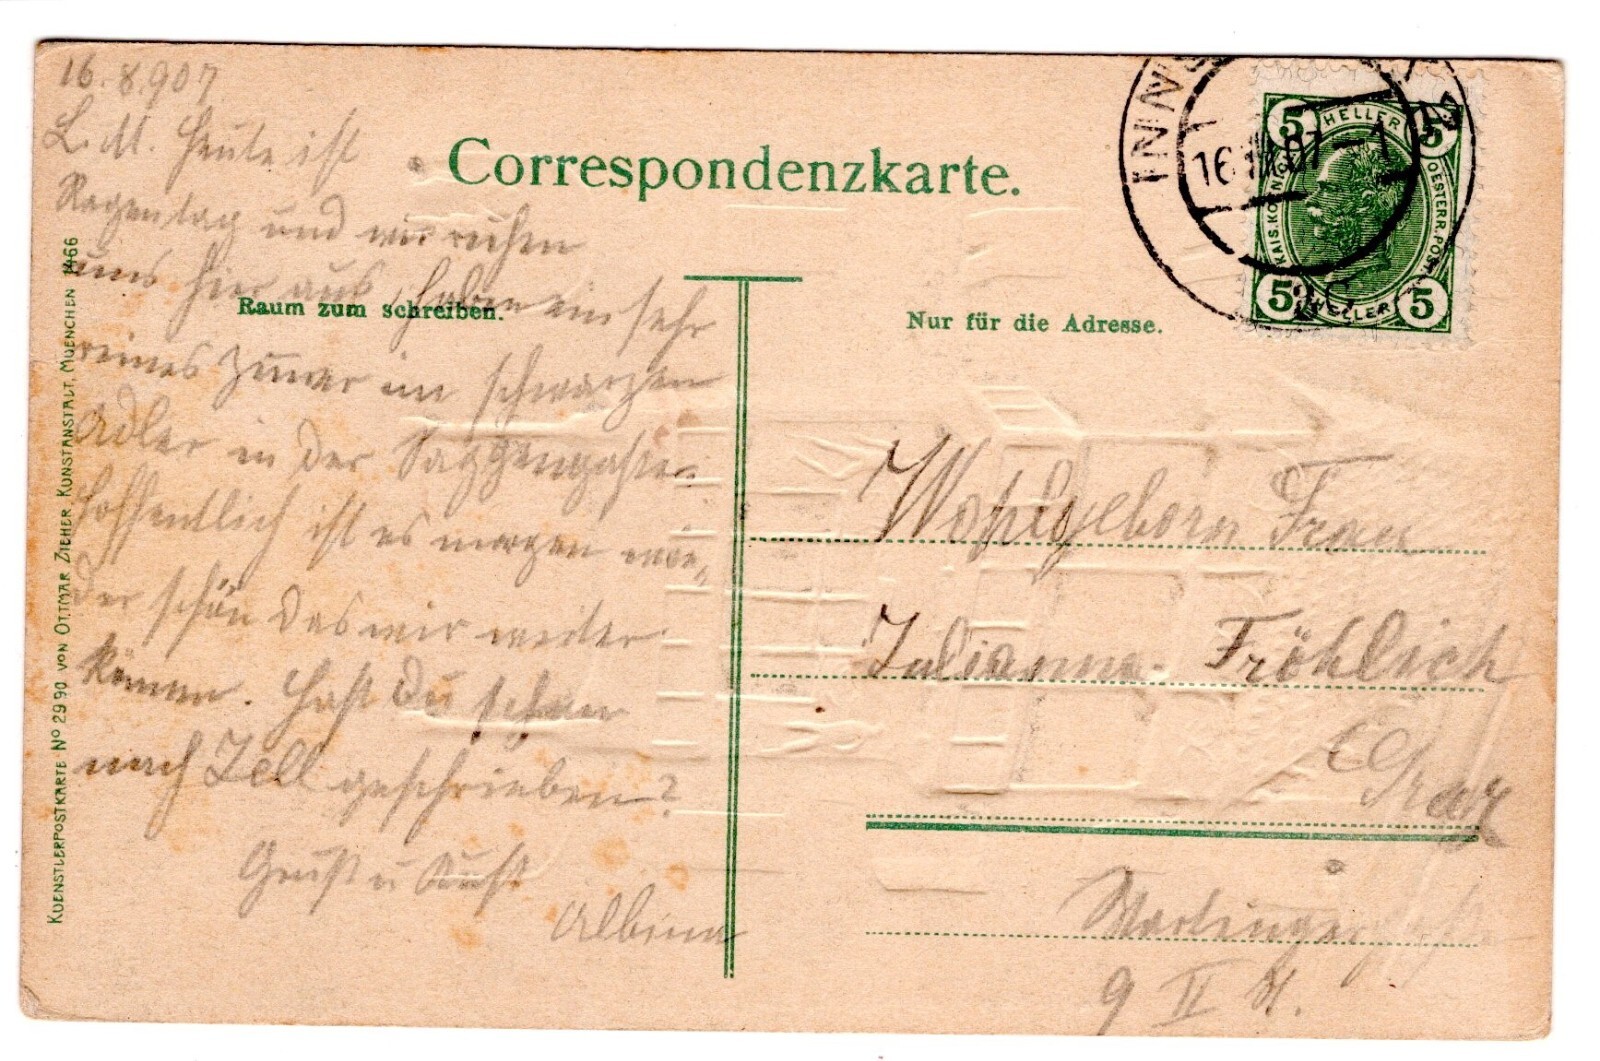 16.8.907
L. M. Heute ist
Regentag und wir ruhen
uns hier aus, haben ein sehr
reines Zimmer im schwarzen
Adler in der Saggengasse.
Hoffentlich ist es morgen wie-
der schön das wir weiter
können. Hast Du schon
nach Zell geschrieben?
Gruß u Kuß
Albina
Correspondenzkarte.
Raum zum schreiben.
Nur für die Adresse.
KUENSTLERPOSTKARTE No 2990 VON OTTMAR ZIEHER, KUNSTANSTALT, MUENCHEN 1466
INNS
16 07-1
5 HELLER 5
KAIS. KÖNIGL.
OESTERR. POST
5 HELLER 5
Wohlgeborn Frau
Julianna Fröhlich
Graz
9 II St.